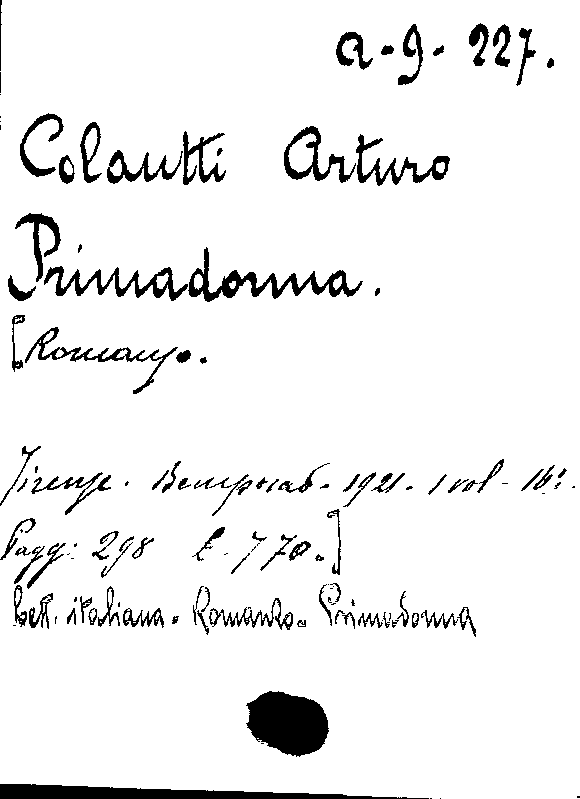 a-9-227.
Colautti Arturo
Primadonna.
[Romanzo.
Firenze. Bemporad - 1921 - 1 vol - 16:
Pagg: 298 £ - 770.]
Lett. italiana. Romanzo. Primadonna